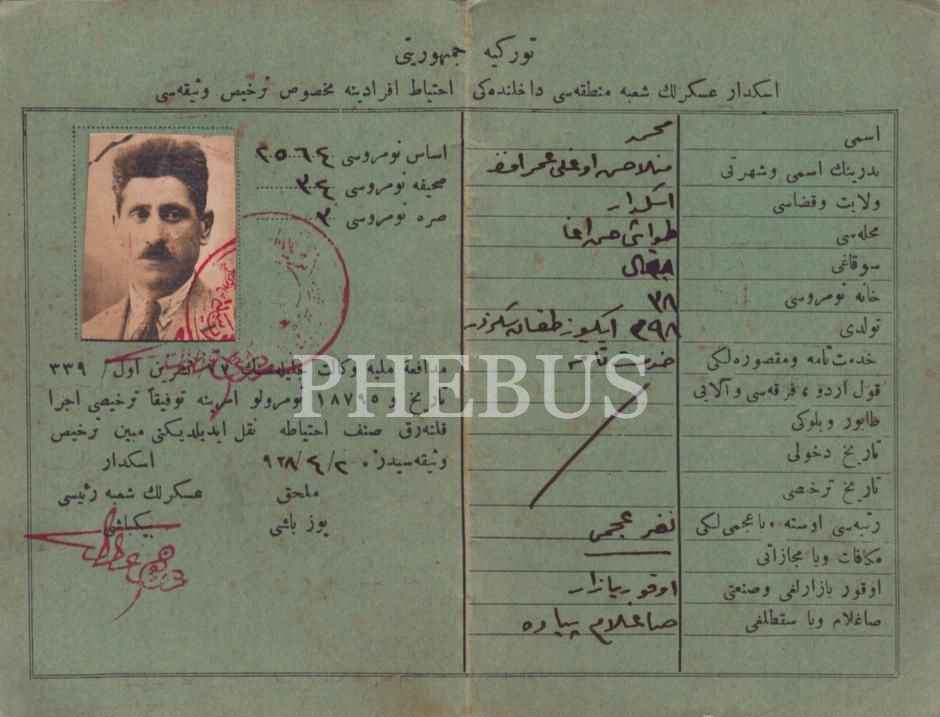 توركیه جمهوریتی
اسكدار عسكرلك شعبه منطقه‌سی داخلنده‌كی احتیاط افرادینه مخصوص ترخیص وثیقه‌سی
اسمی محمد
پدرینك اسمی وشهرتی منلا حسن اوغلی
ولایت وقضاسی اسكدار
محله‌سی طواشی حسن اغا
سوقاغی
خانه نومروسی ٣٨
تولدی ٢٩٨ ایكیوز طقسان سكز در
خدمت‌نامه ومقصوره‌لكی
قول اردو ، فرقه‌سی وآلایی
طابور وبلوكی
تاریخ دخولی
تاریخ ترخیصی
رتبه‌سی اوسته ویا عجمی‌لكی نفر عجمی
مكافات ویا مجازاتی
اوقور یازارلغی وصنعتی اوقور یازار
صاغلام ویا سقطلغی صاغلام پیاده
اساس نومروسی
صحیفه نومروسی ٣٠٤
صره نومروسی ٣
مدافعهٔ ملیه وكالت جلیله‌سنك ٢٧ تشرین اول / ٣٣٩
تاریخ و ١٨٧٩٥ نومرولو امرینه توفیقاً ترخیصی اجرا
قلنه‌رق صنف احتیاطه نقل ایدیلدیكنی مبین ترخیص
وثیقه‌سیدر. ٢٠/٤/٩٢٨ اسكدار
ملحق عسكرلك شعبه رئیسی
یوز باشی بیكباشی
PHEBUS